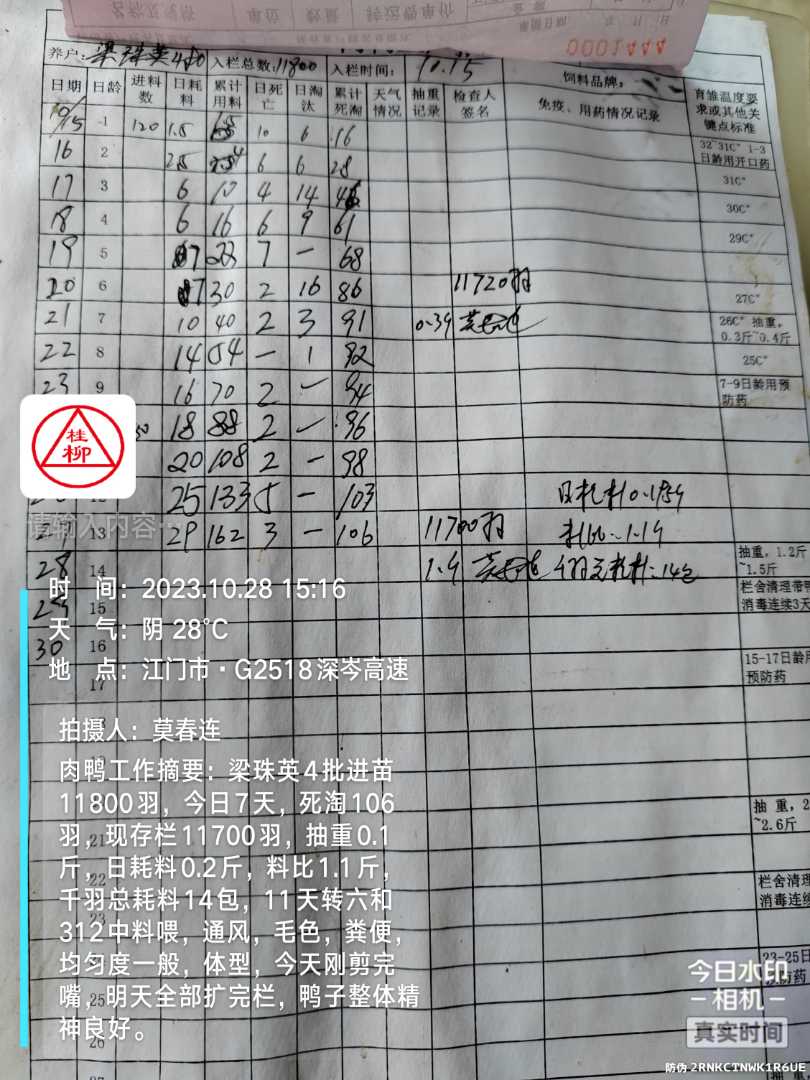 0001444
养户: 梁珠英4批 入栏总数: 11800 入栏时间: 10.15 饲料品牌:
日期 日龄 进料数 日耗料 累计用料 日死亡 日淘汰 累计死淘 天气情况 抽重记录 检查人签名 免疫、用药情况记录 育雏温度要求或其他关键点标准
10/15 1 120 1.5 10 6 16
32~31C° 1-3日龄用开口药
16 2 2.5 4 6 6 28
31C°
17 3 6 10 4 14 46
30C°
18 4 6 16 6 9 61
29C°
19 5 7 23 7 - 68
20 6 7 30 2 16 86 11720羽
27C°
21 7 10 40 2 3 91 0.39 莫春连
26C° 抽重,0.3斤~0.4斤
22 8 14 54 - 1 92
25C°
23 9 16 70 2 - 94
7-9日龄用预防药
18 88 2 - 96
20 108 2 - 98
25 133 5 - 103 日耗料0.195斤
13 29 162 3 - 106 11700羽 料比:1.19
28 14 1.9 莫春连 千羽总耗料:14包
抽重,1.2斤~1.5斤
29 15
栏舍清理带鸭消毒连续3天
30 16
15-17日龄用预防药
17
21
抽 重,2
~2.6斤
22
栏舍清理
消毒连续
23
23-25日
预防药
25
26
桂柳
请输入内容…
时 间: 2023.10.28 15:16
天 气: 阴 28℃
地 点: 江门市·G2518深岑高速
拍摄人: 莫春连
肉鸭工作摘要: 梁珠英4批进苗
11800羽，今日7天，死淘106
羽，现存栏11700羽，抽重0.1
斤，日耗料0.2斤，料比1.1斤，
千羽总耗料14包，11天转六和
312中料喂，通风，毛色，粪便，
均匀度一般，体型，今天刚剪完
嘴，明天全部扩完栏，鸭子整体精
神良好。
今日水印
相机
真实时间
防伪 2RNKCTNWK1R6UE